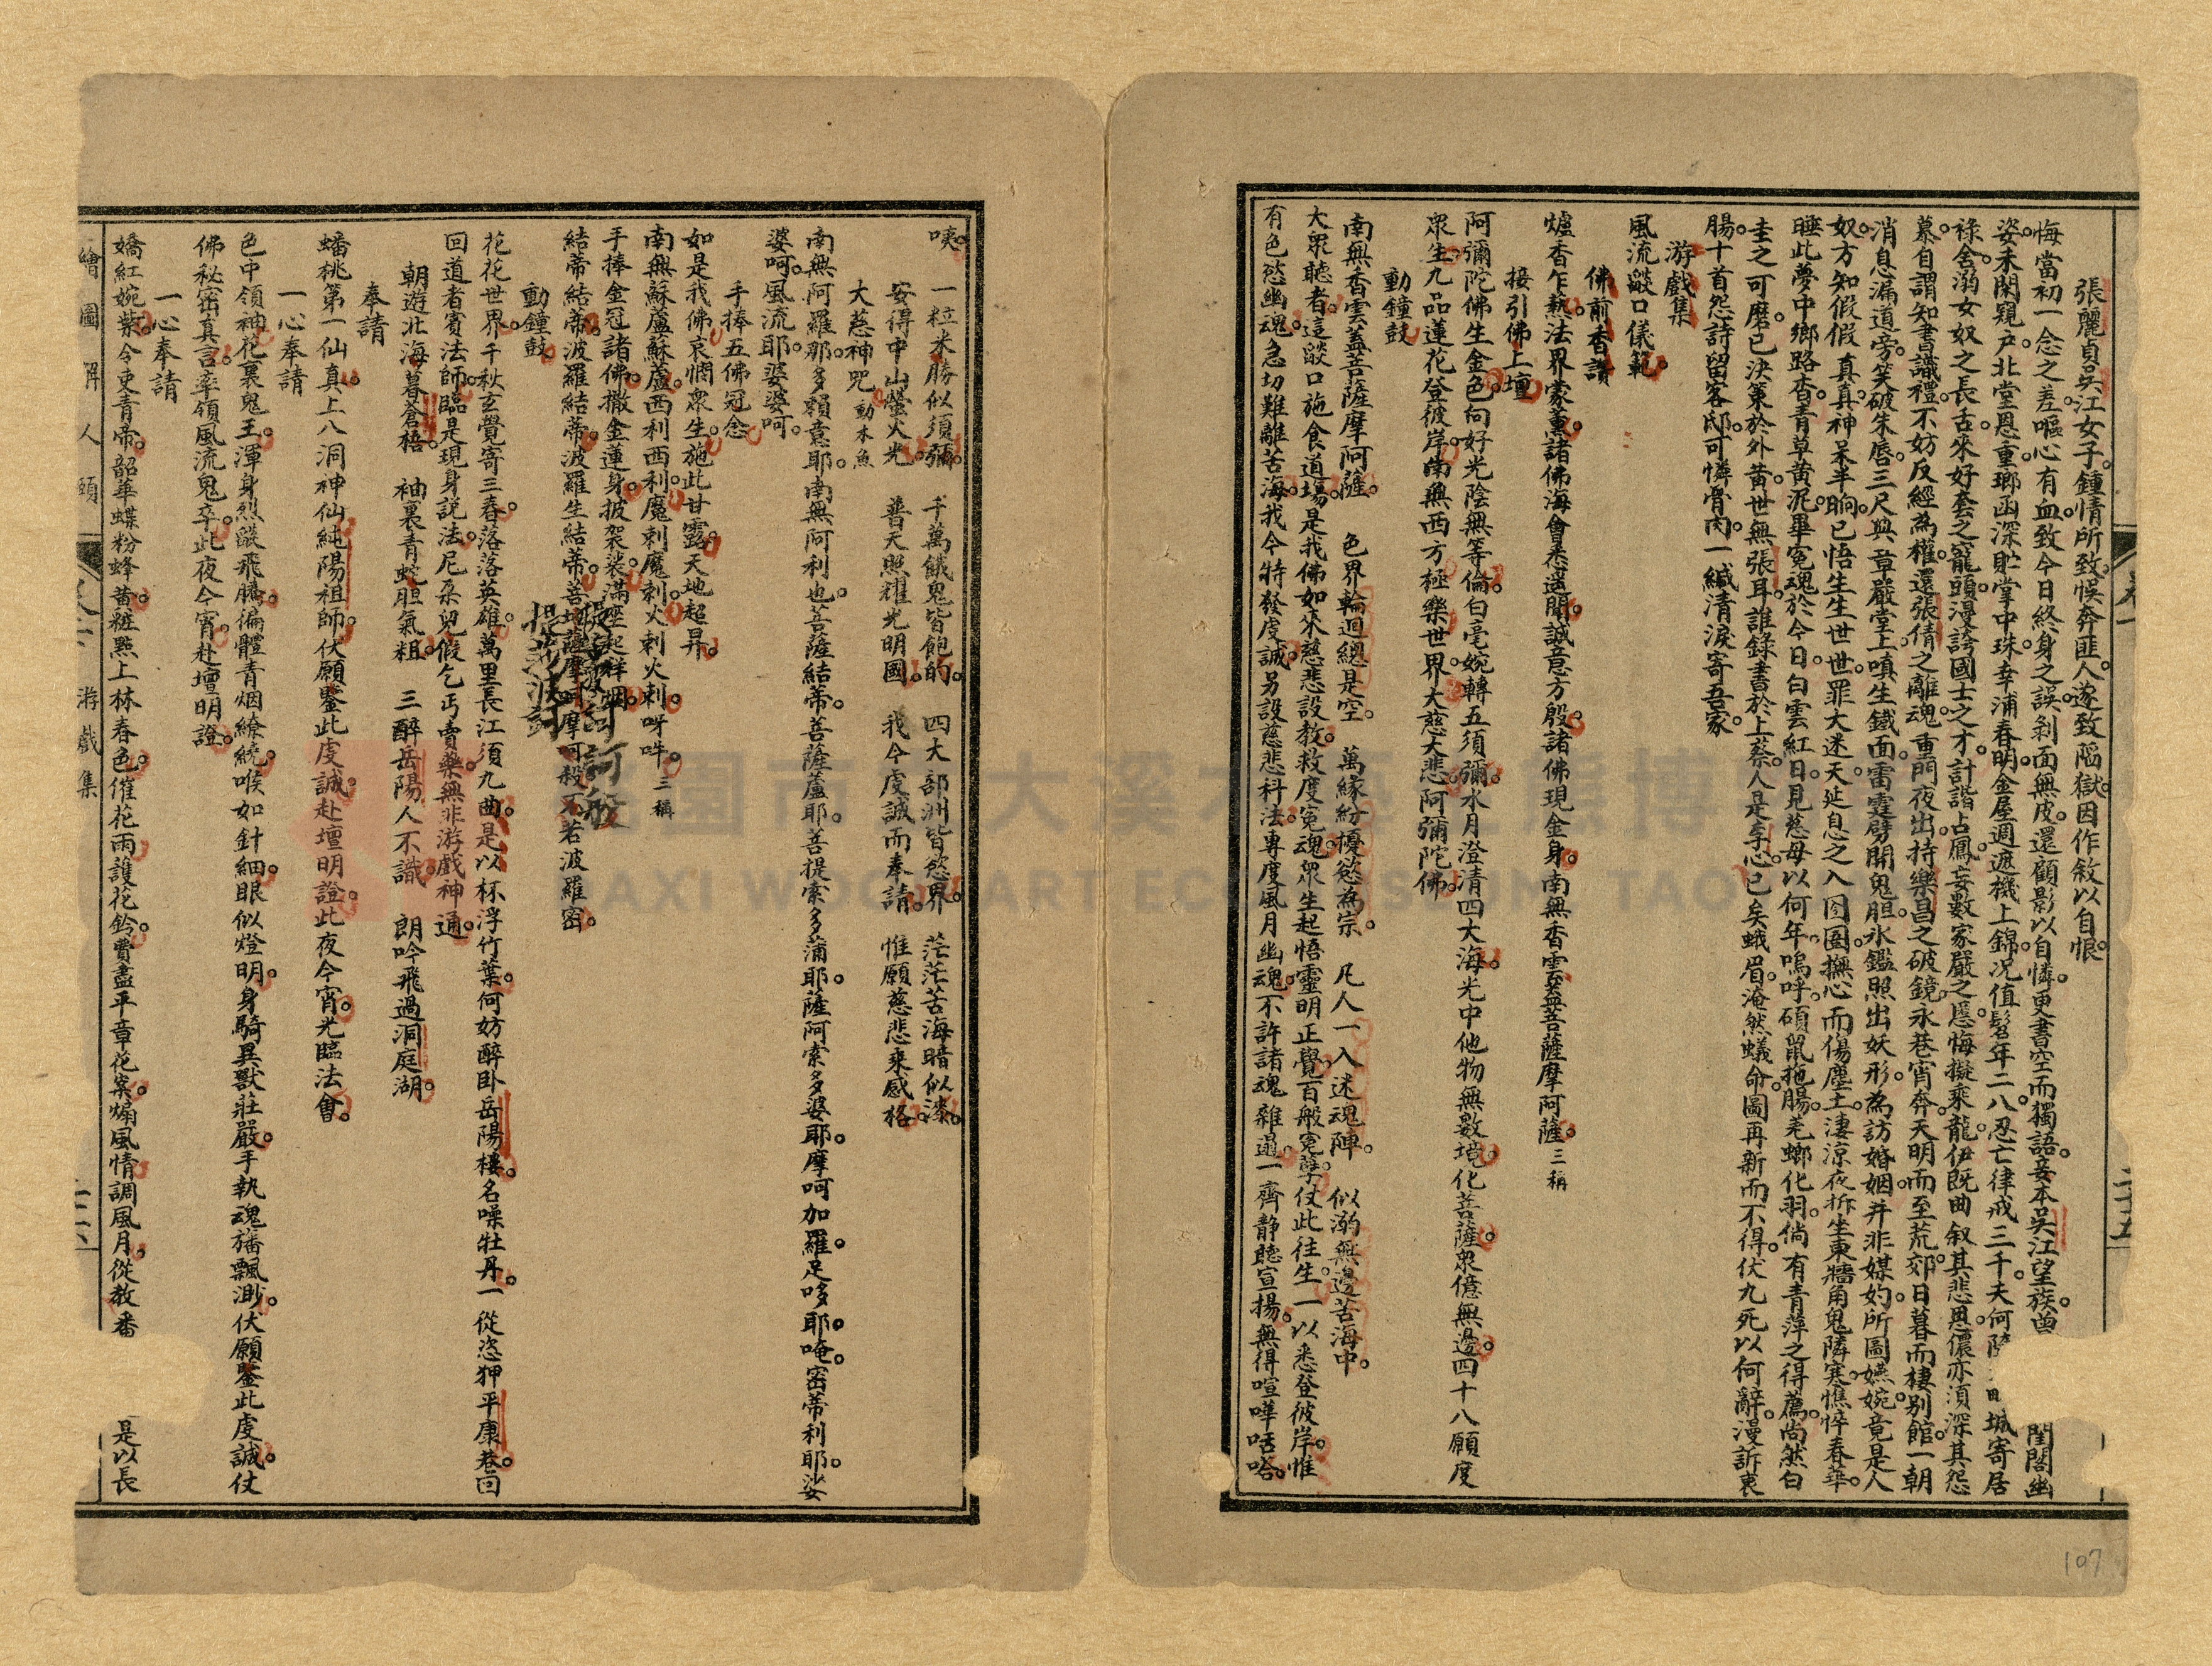 張麗貞吳江女子。鍾情所致。悞奔匪人。遂致陷獄。因作敘以自恨。
悔當初一念之差。嘔心有血。致今日終身之誤。剝面無皮。還顧影以自憐。更書空而獨語。妾本吳江望族。 閨閤幽
姿。未閑覲戶。北堂恩重。瑯函深貯掌中珠。幸浦春明。金屋週遮機上錦。况值髫年二八。忍亡律戒三千。夫何 城寄居
祿。舍溺女奴之長舌。來好套之竉頭。漫誇國士之才。計諧占鳳。妄數家嚴之慝。悔擬乘龍。伊既曲叙其悲。恩儂亦湏深其怨
慕。自謂知書識禮。不妨反經為權。還張倩之離魂。重門夜出。持樂昌之破鏡。永巷宵奔。天明而至荒郊。日暮而棲别館。一朝
消息漏道旁。笑破朱唇。三尺典章嚴堂上。嗔生鐵面。雷霆劈開鬼胆。氷鑑照出妖形。為訪婚姻。并非媒妁。所圖嬿婉。竟是人
奴。方知假假真真。神呆半晌。已悟生生世世。罪大迷天。延息之入囹圄。撫心而傷塵土。凄涼夜柝。坐東牆角。鬼隣寒。憔悴春華。
睡此夢中鄉路杳。青草黄泥。畢寃魂於今日。白雲紅日。見慈母以何年。嗚呼。碩鼠拖腸。羌螂化羽。倘有青萍之得薦。尚然白
圭之可磨。已決策於外黃。世無張耳。誰錄書於上蔡。人是李心。已矣蛾眉。淹然蟻命。圖再新而不得。伏九死以何辭。漫訴衷
腸。十首怨詩留客邸。可憐骨肉。一緘清淚寄吾家。
游戲集
風流燄口儀範。
佛前香讚
爐香乍熱。法界蒙薰。諸佛海會悉遥聞。誠意方殷。諸佛現金身。南無香雲葢菩薩摩阿薩。三稱
接引佛上壇
阿彌陀佛生金色。向好光陰無等倫。白毫婉轉五須彌。水月澄清四大海。光中他物無數境。化菩薩衆億無邊。四十八願度
衆生。九品蓮花登彼岸。南無西方極樂世界。大慈大悲。阿彌陀佛。
動鐘鼓
南無香雲葢菩薩摩阿薩。 色界輪迴總是空。 萬緣紛擾慾為宗。 凡人一入迷魂陣。 似溺無邊苦海中。
大衆聽者。這燄口施食道塲。是我佛如來慈悲設教。救度寃魂衆生。起悟靈明正覺。百般寃孽。仗此往生。一以悉登彼岸。惟
有色慾幽魂。急切難離苦海。我今特發虔誠。另設慈悲科法。專度風月幽魂。不許諸魂雜遝。一齊静聽宣揚。無得喧嘩咶嗒。
咦。 一粒米勝似須彌。 千萬餓鬼皆飽的。 四大部洲皆慾界。 茫茫苦海暗似漆。
安得中山螢火光。 普天照耀光明國。 我今虔誠而奉請。 惟願慈悲來感格。
大慈神咒 動木魚
南無阿羅那。多賴意耶。南無阿利也。菩薩結蒂。菩薩蘆耶。菩提索多蒲耶。薩阿索多婆耶。摩呵加羅。足哆耶。唵。密蒂利耶。娑
婆呵。風流耶。婆婆呵。
手捧五佛冠念
如是我佛哀憫衆生。施此甘露。天地超昇。
南無蘇蘆蘇蘆。西利西利。魔刺魔刺。火刺火刺。呀吽。三稱
手捧金冠諸佛。撒金蓮身披袈裟。滿座起祥烟。
結蒂結蒂。波羅結蒂。波羅生結蒂。菩埵薩摩呵摩訶般若波羅密。
動鐘鼓。
花花世界。千秋玄覺寄三春。落落英雄。萬里長江須九曲。是以杯浮竹葉。何妨醉卧岳陽樓。名噪牡丹。一從恣狎平康巷。回
回道者賓法師。臨是現身説法。尼朶兒假乞丐賣藥。無非游戲神通。
朝遊北海暮蒼梧。 袖裏青蛇胆氣粗。 三醉岳陽人不識。 朗吟飛過洞庭湖。
奉請
蟠桃第一仙真。上八洞神仙純陽祖師。伏願鑒此虔誠。赴壇明證。此夜今宵。光臨法會。
一心奉請
色中領袖。花裏鬼王。渾身烈燄飛騰。徧體青烟繚繞。喉如針細。眼似燈明。身騎異獸莊嚴。手執魂旛飄渺。伏願鑒此虔誠。仗
佛秘密真言。率領風流鬼卒。此夜今宵。赴壇明證。
一心奉請
嬌紅婉紫。今吏青帝。韶華蝶粉蜂黃。粧㸃上林春色。催花雨護花鈴。費盡平章花案。煽風情調風月。從教番 是以長
繪圖解人頤 游戲集
107